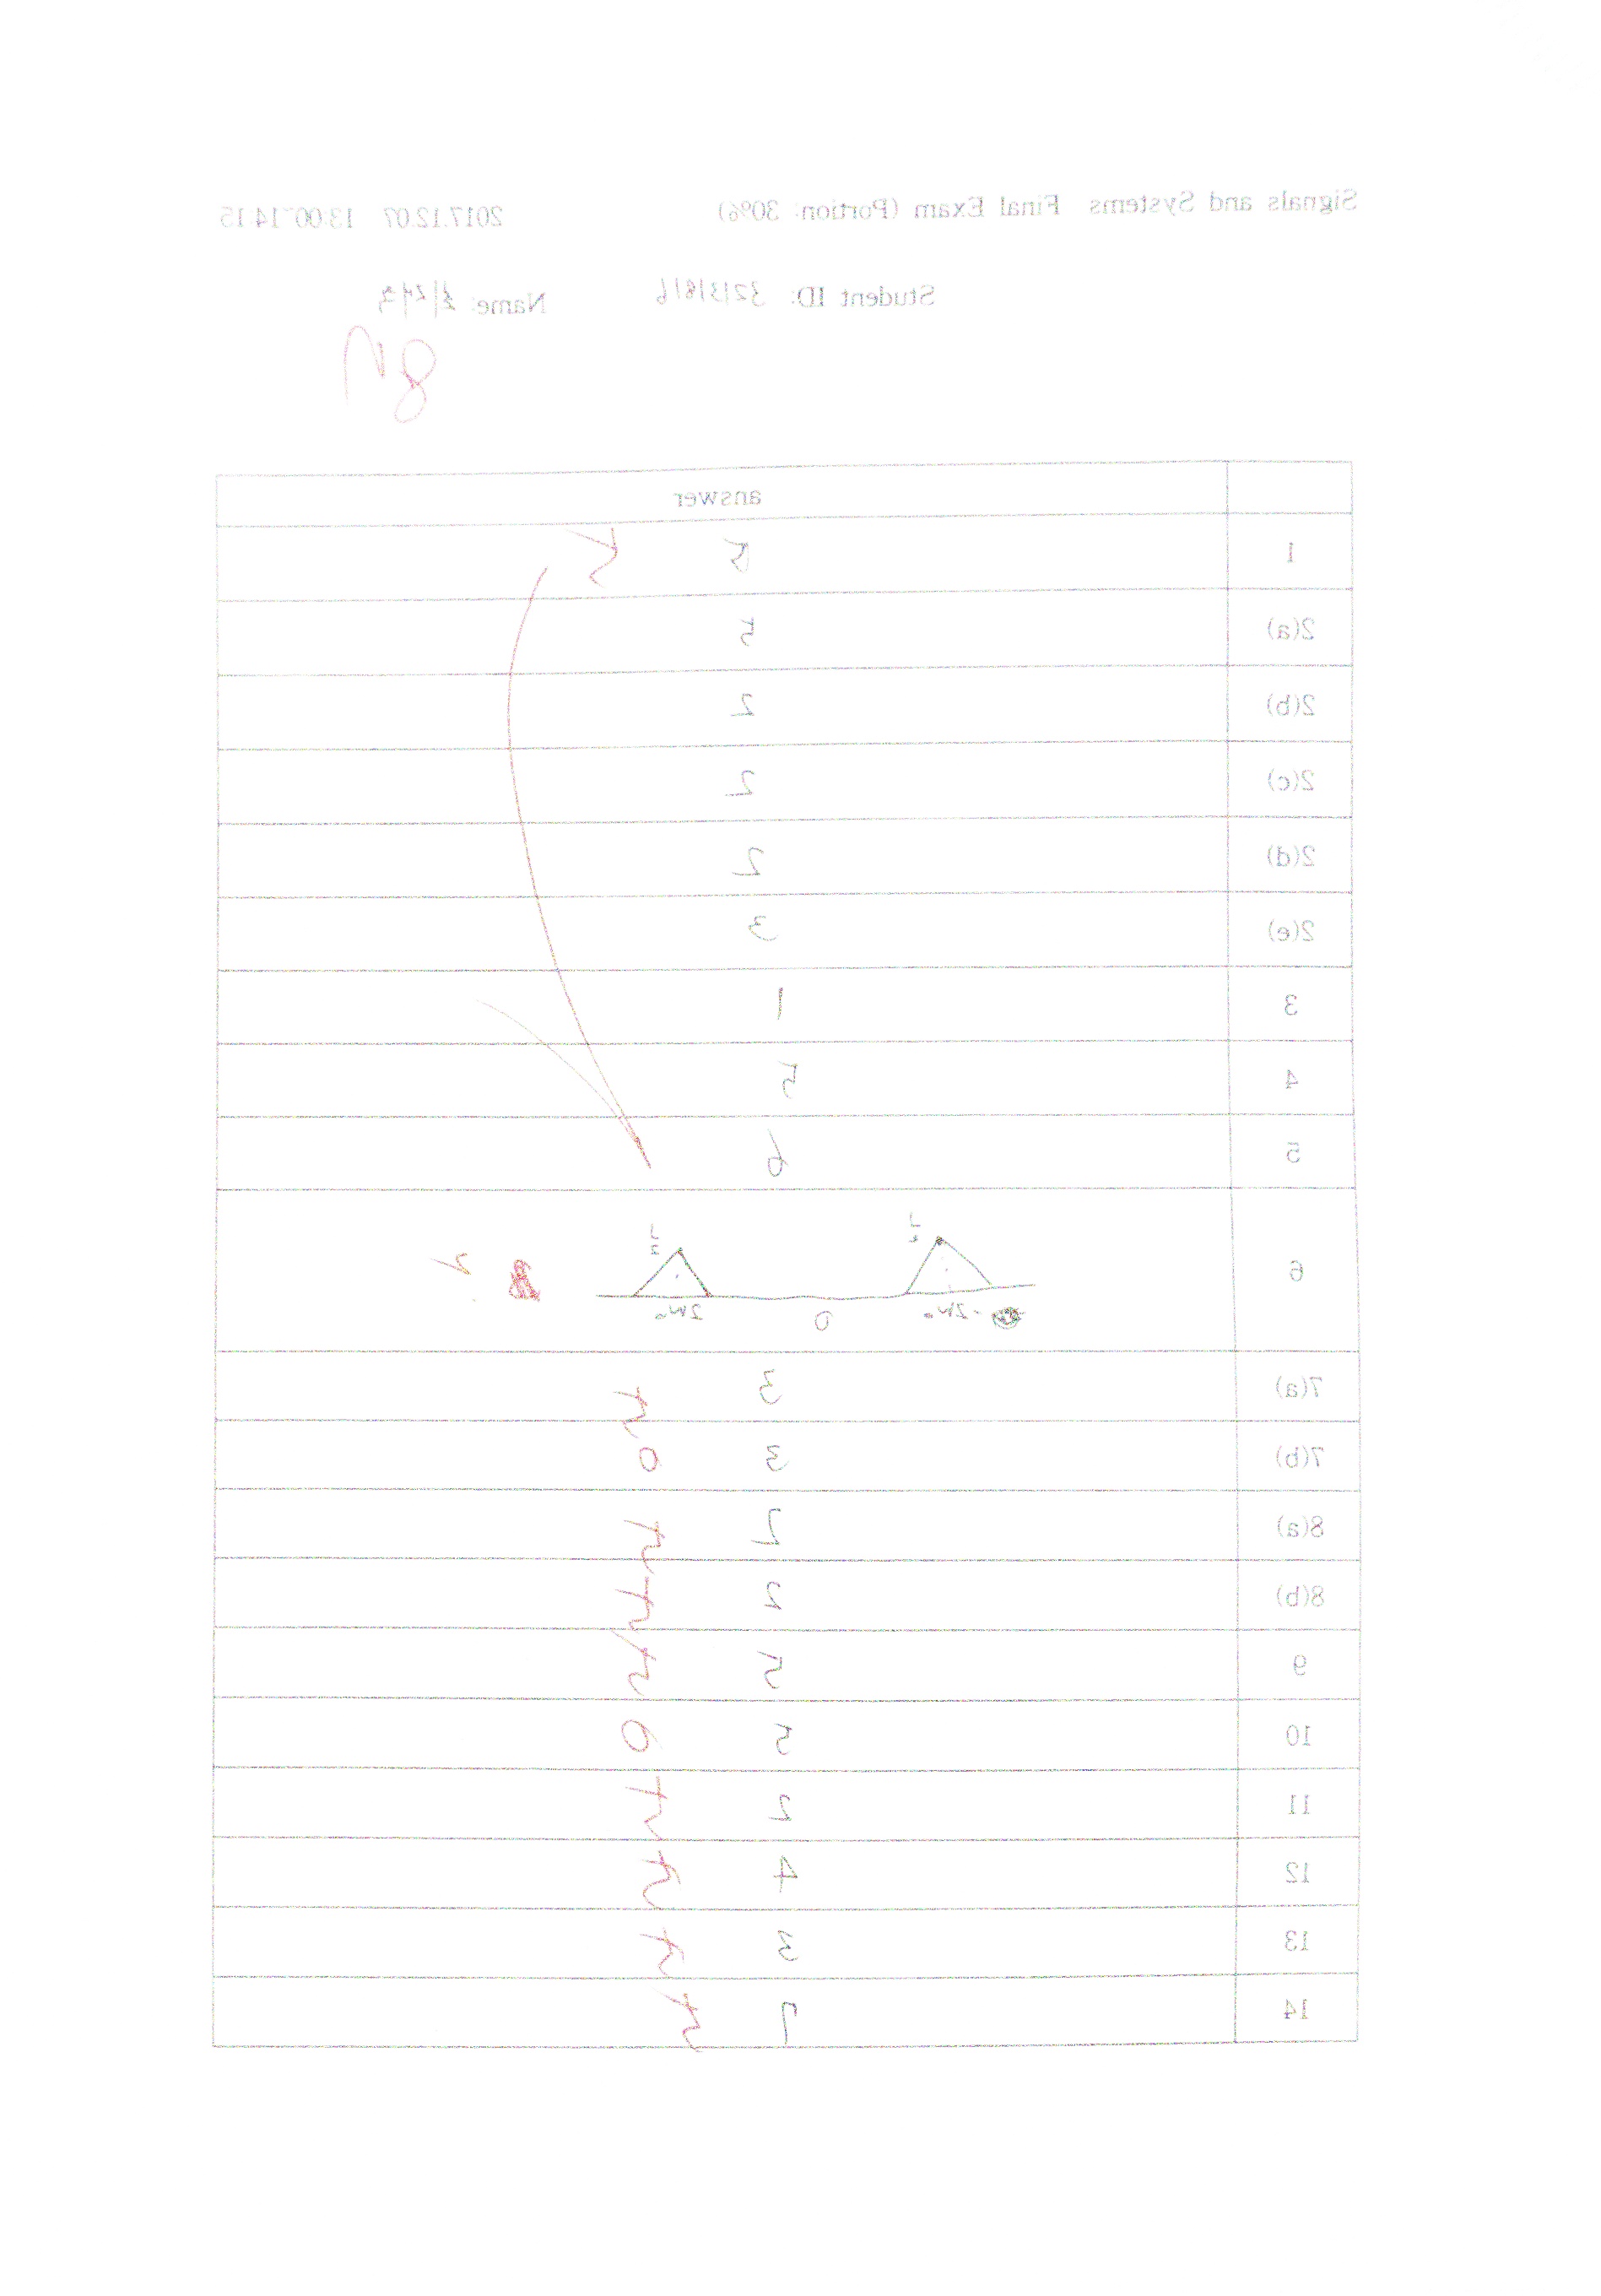 Signals and Systems Final Exam (Portion: 30%) 2017.12.07 13:00~14:15
Student ID: 32131816 Name:
answer
1 5
2(a) 5
2(b) 2
2(c) 2
2(d) 2
2(e) 3
3 1
4 5
5 6
6 1/2 1/2
-2W₀ 0 2W₀
7(a) 3
7(b) 3 0
8(a) 2
8(b) 2
9 5
10 5 0
11 2
12 4
13 3
14 1